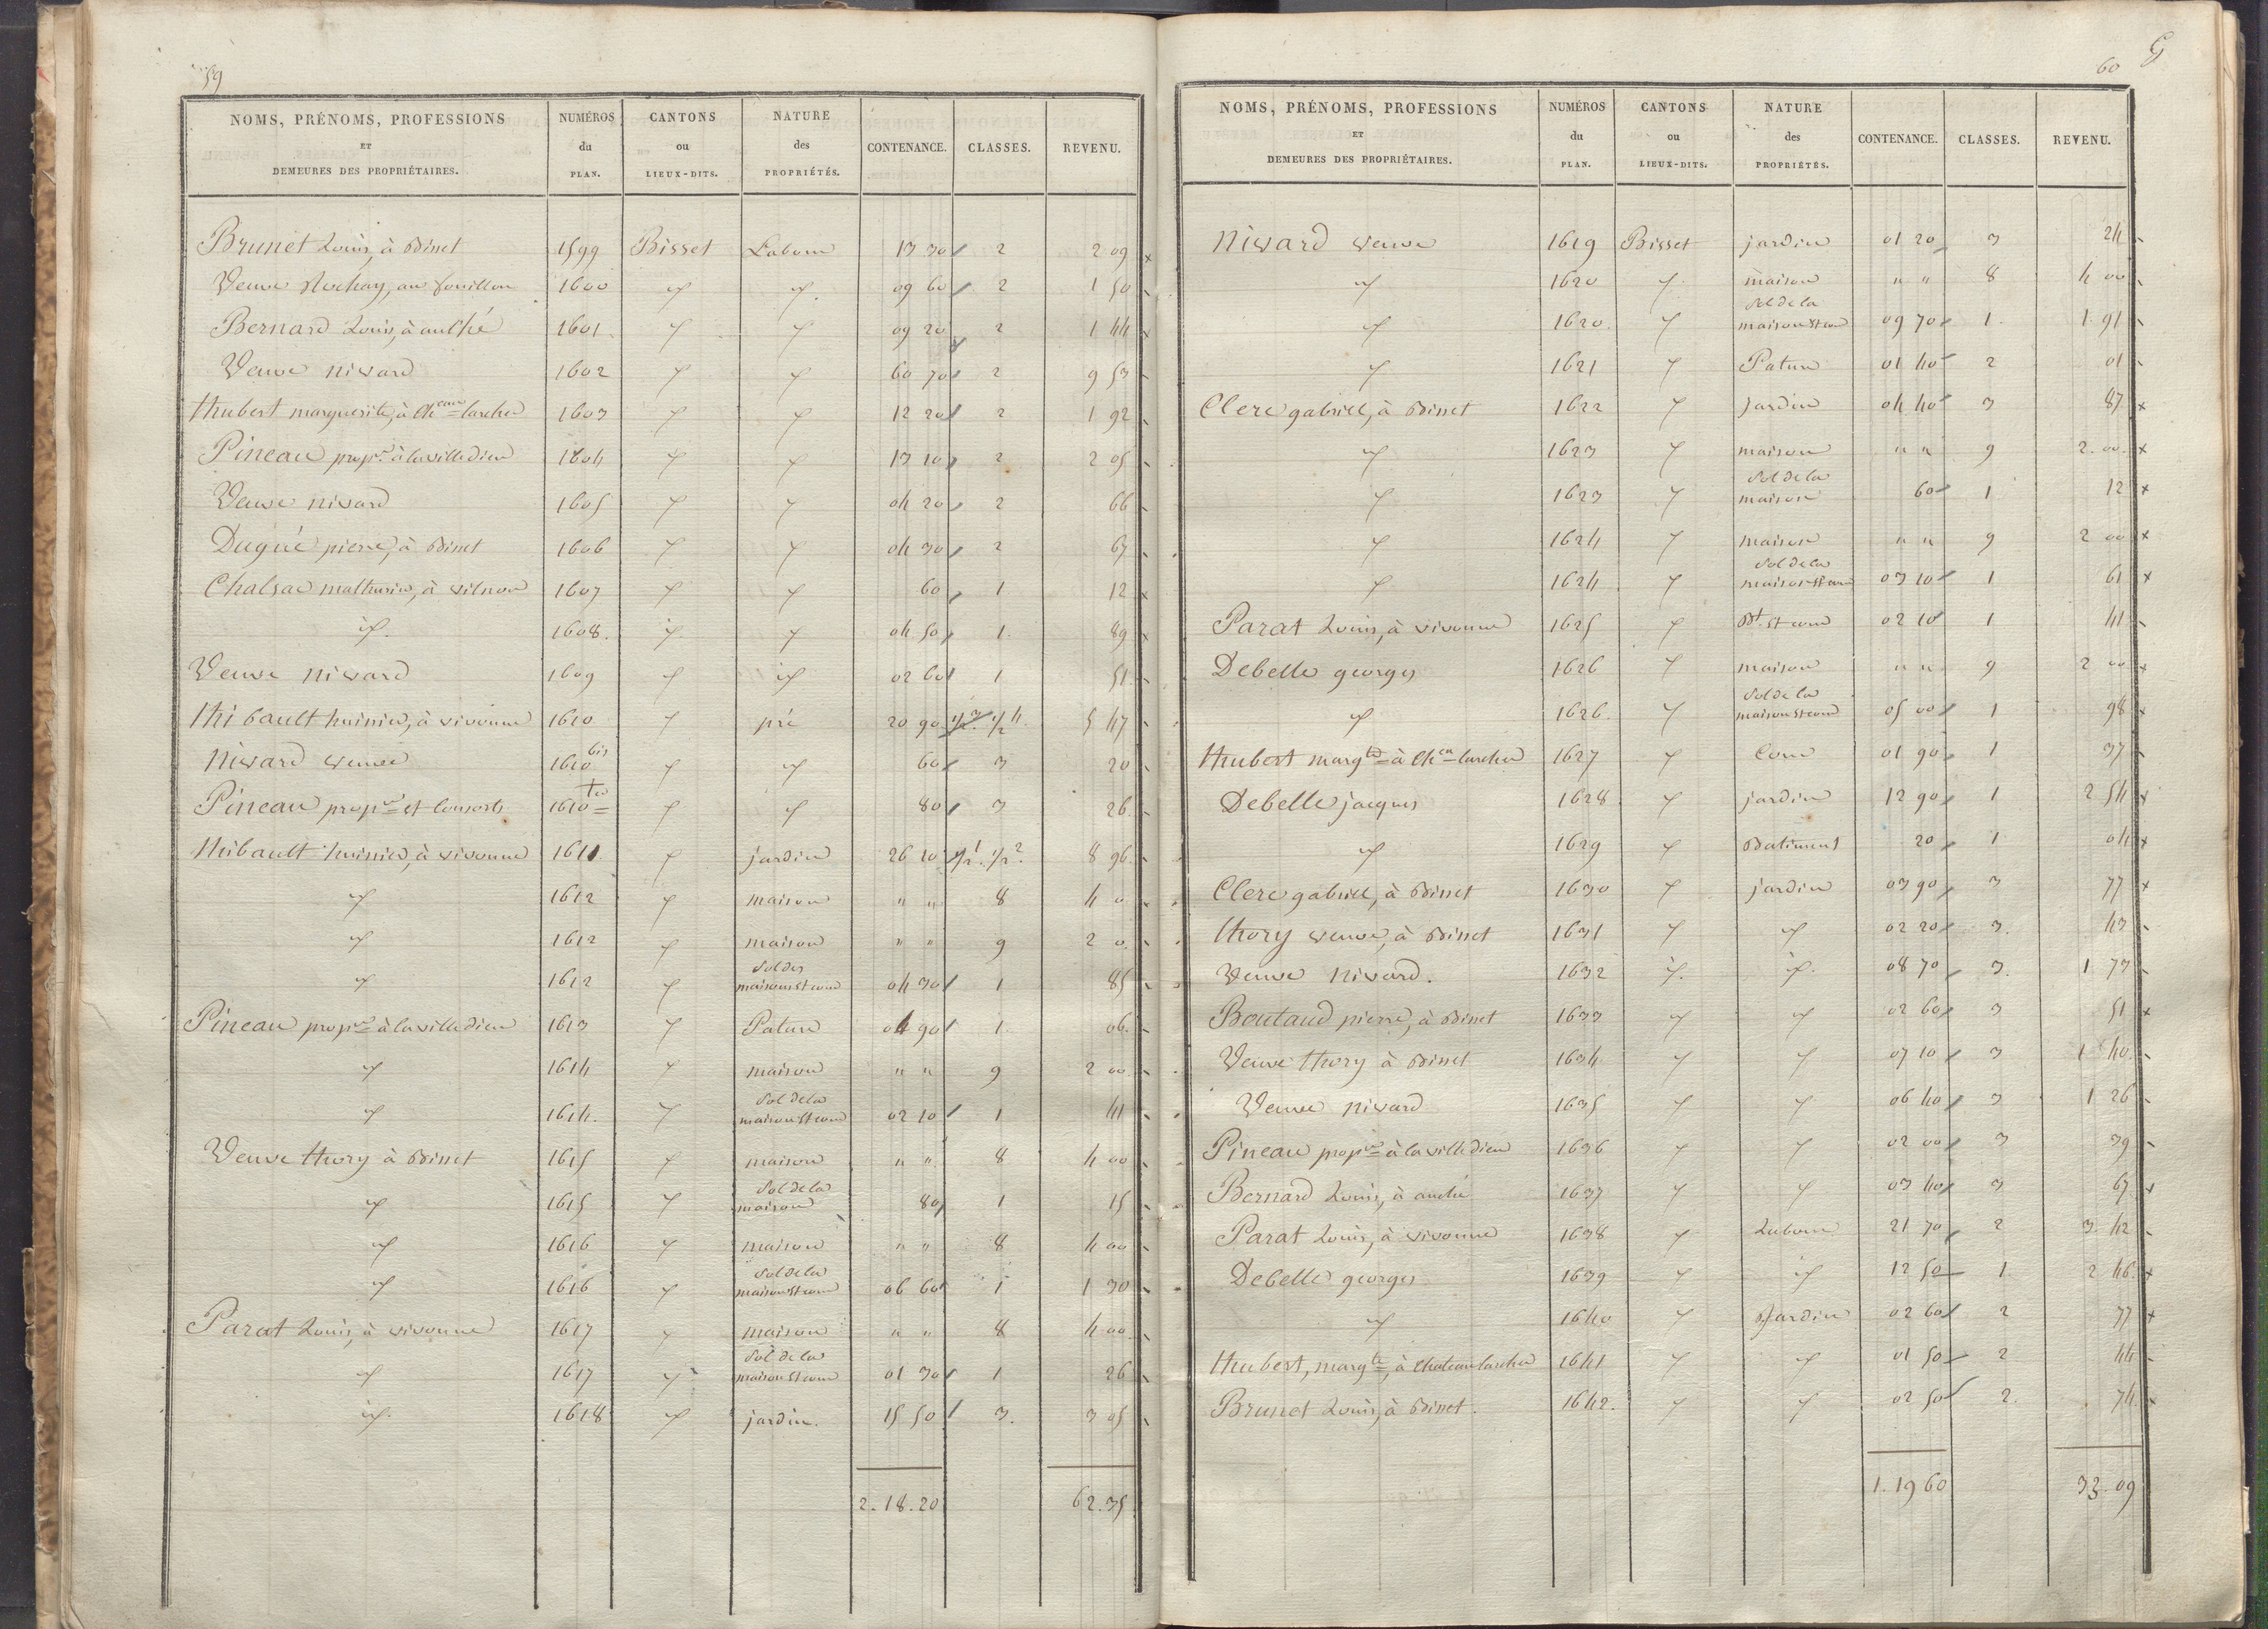 59
NOMS, PRÉNOMS, PROFESSIONS ET DEMEURES DES PROPRIÉTAIRES. NUMÉROS du PLAN. CANTONS ou LIEUX-DITS. NATURE des PROPRIÉTÉS. CONTENANCE. CLASSES. REVENU.
Brunet Louis, à Bisset 1599 Bisset Labour 13 30 2 2 09
Veuve Rochay, au fouillou 1600 id id 09 60 2 1 50
Bernard Louis, à aulhé 1601 id id 09 20 2 1 44
Veuve nivard 1602 id id 60 70 2 9 53
hubert marguerite, à Cheau larcher 1603 id id 12 20 2 1 92
Pineau propre à lavilledieu 1604 id id 13 10 2 2 05
Veuve nivard 1605 id id 04 20 2 66
Dugué pierre, à Bisset 1606 id id 04 30 2 67
Chalsac mathurin, à vilnon 1607 id id 60 1 12
id. 1608. id. id 04 50 1. 89
Veuve nivard 1609 id id 02 60 1 51
thibault huissier, à vivonne 1610 id pré 20 90 1/2 3 1/2 4. 5 47
nivard veuve 1610 bis id id 60 3 20
Pineau propre et consorts 1610 ter id id 80 3 26
thibault huissier, à vivonne 1611 id jardin 26 10 1/2 1. 1/2 2. 8 96
id 1612 id maison " " 8 4 0
id 1612 id maison " " 9 2 0.
id 1612 id Sol des maisons et cour 04 30 1 85
Pineau propre à lavilledieu 1613 id Pature 04 90 1 06
id 1614 id maison " " 9 2 00
id 1614. id Sol de la maison et cour 02 10 1 41
Veuve thory à Bisset 1615 id maison " " 8 4 00
id 1615 id Sol de la maison 80 1 15
id 1616 id maison " " 8 4 00
id 1616 id Sol de la maison et cour 06 60 1 1 30
Parat Louis, à vivonne 1617 id maison " " 8 4 00
id 1617 id Sol de la maison et cour 01 30 1 26
id. 1618 id jardin. 15 50 3. 3 05
2.18.20 62.35
60
G
NOMS, PRÉNOMS, PROFESSIONS ET DEMEURES DES PROPRIÉTAIRES. NUMÉROS du PLAN. CANTONS ou LIEUX-DITS. NATURE des PROPRIÉTÉS. CONTENANCE. CLASSES. REVENU.
nivard veuve 1619 Bisset jardin 01 20 3 24
id 1620 id maison " " 8 4 00
id 1620. id Sol de la maison et cour 09 70 1. 1. 91
id 1621 id Pature 01 40 2 01
Clerc gabriel, à Bisset 1622 id jardin 04 40 3 87
id 1623 id maison " " 9 2. 00.
id 1623 id Sol de la maison 60 1 12
id 1624 id maison " " 9 2 00
id 1624 id Sol de la maison et cour 03 10 1 61
Parat Louis, à vivonne 1625 id Bt et cour 02 10 1 41
Debelle georges 1626 id maison " " 9 2 00
id 1626. id Sol de la maison et cour 05 00 1 98
hubert margte à Cheau larcher 1627 id Cour 01 90 1 37
Debelle jacques 1628 id jardin 12 90 1 2 54
id 1629 id Batiment 20 1 04
Clerc gabriel, à Bisset 1630 id jardin 03 90 3 77
thory veuve, à Bisset 1631 id id 02 20 3. 43
Veuve nivard. 1632 id. id. 08 70 3. 1 73
Boutaud pierre, à Bisset 1633 id id 02 60 3 51
Veuve thory à Bisset 1634 id id 07 10 3 1 40.
Veuve nivard 1635 id id 06 40 3 1 26
Pineau propre à lavilledieu 1636 id id 02 00 3 39
Bernard Louis, à auché 1637 id id 03 40 3 67
Parat Louis, à vivonne 1638 id Labour 21 70 2 3. 42
Debelle georges 1639 id id 12 50 1. 2 46
id 1640 id Jardin 02 60 2 77
hubert, margte, à Chateau larcher 1641 id id 01 50 2 44
Brunet Louis, à Bisset. 1642. id id 02 50 2. 74
1.19 60 33.09